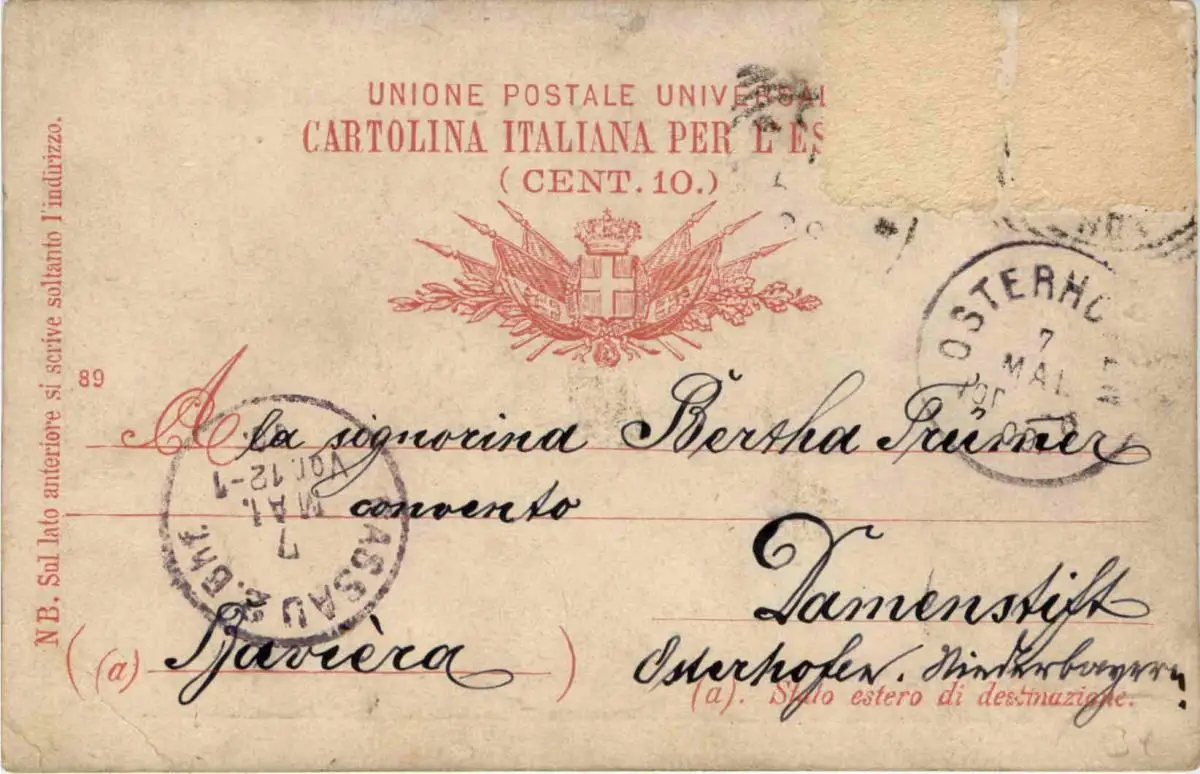 UNIONE POSTALE UNIVERSAL
CARTOLINA ITALIANA PER L'ES
(CENT. 10.)
NB. Sul lato anteriore si scrive soltanto l'indirizzo.
89
OSTERHO
7
MAI
Vor
A la signorina Bertha
convento
PASSAU 2. Bhf
7
MAI.
Vor. 12-1
Damenstift
(a) Bavièra
Osterhofen. Niederbayern.
(a). Stato estero di destinazione.